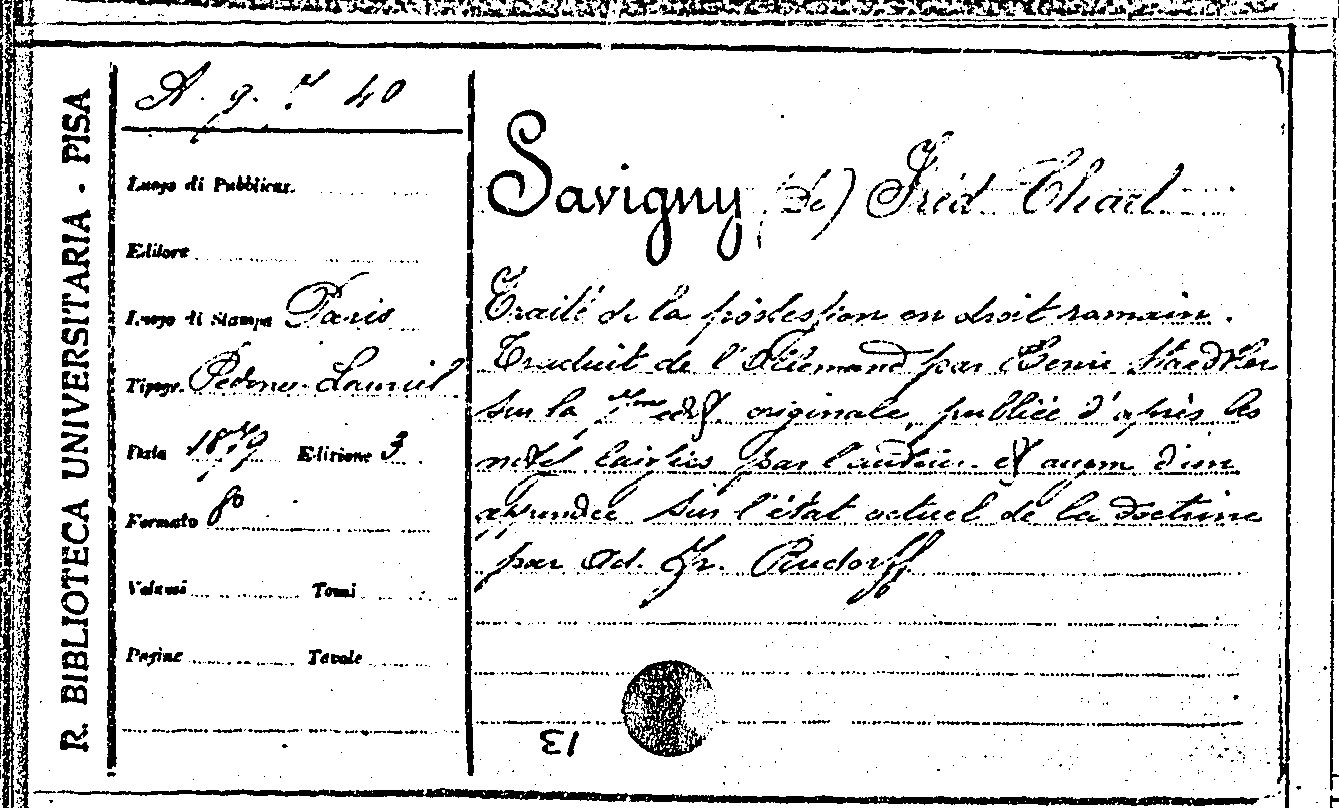 R. BIBLIOTECA UNIVERSITARIA - PISA
A. g. 7 40
Luogo di Pubblicaz.
Editore
Luogo di Stampa Paris
Tipogr. Pedone-Lauriel
Data 1879 Edizione 3
Formato 8°
Volumi Tomi
Pagine Tavole
Savigny (de) Fréd. Charl.
Traité de la possession en droit romain.
Traduit de l'Allemand par Henri Staedtler
sur la 7me edit. originale, publiée d'après les
notes laissées par l'auteur et augm. d'un
appendice sur l'état actuel de la doctrine
par Ad. Fr. Rudorff
13